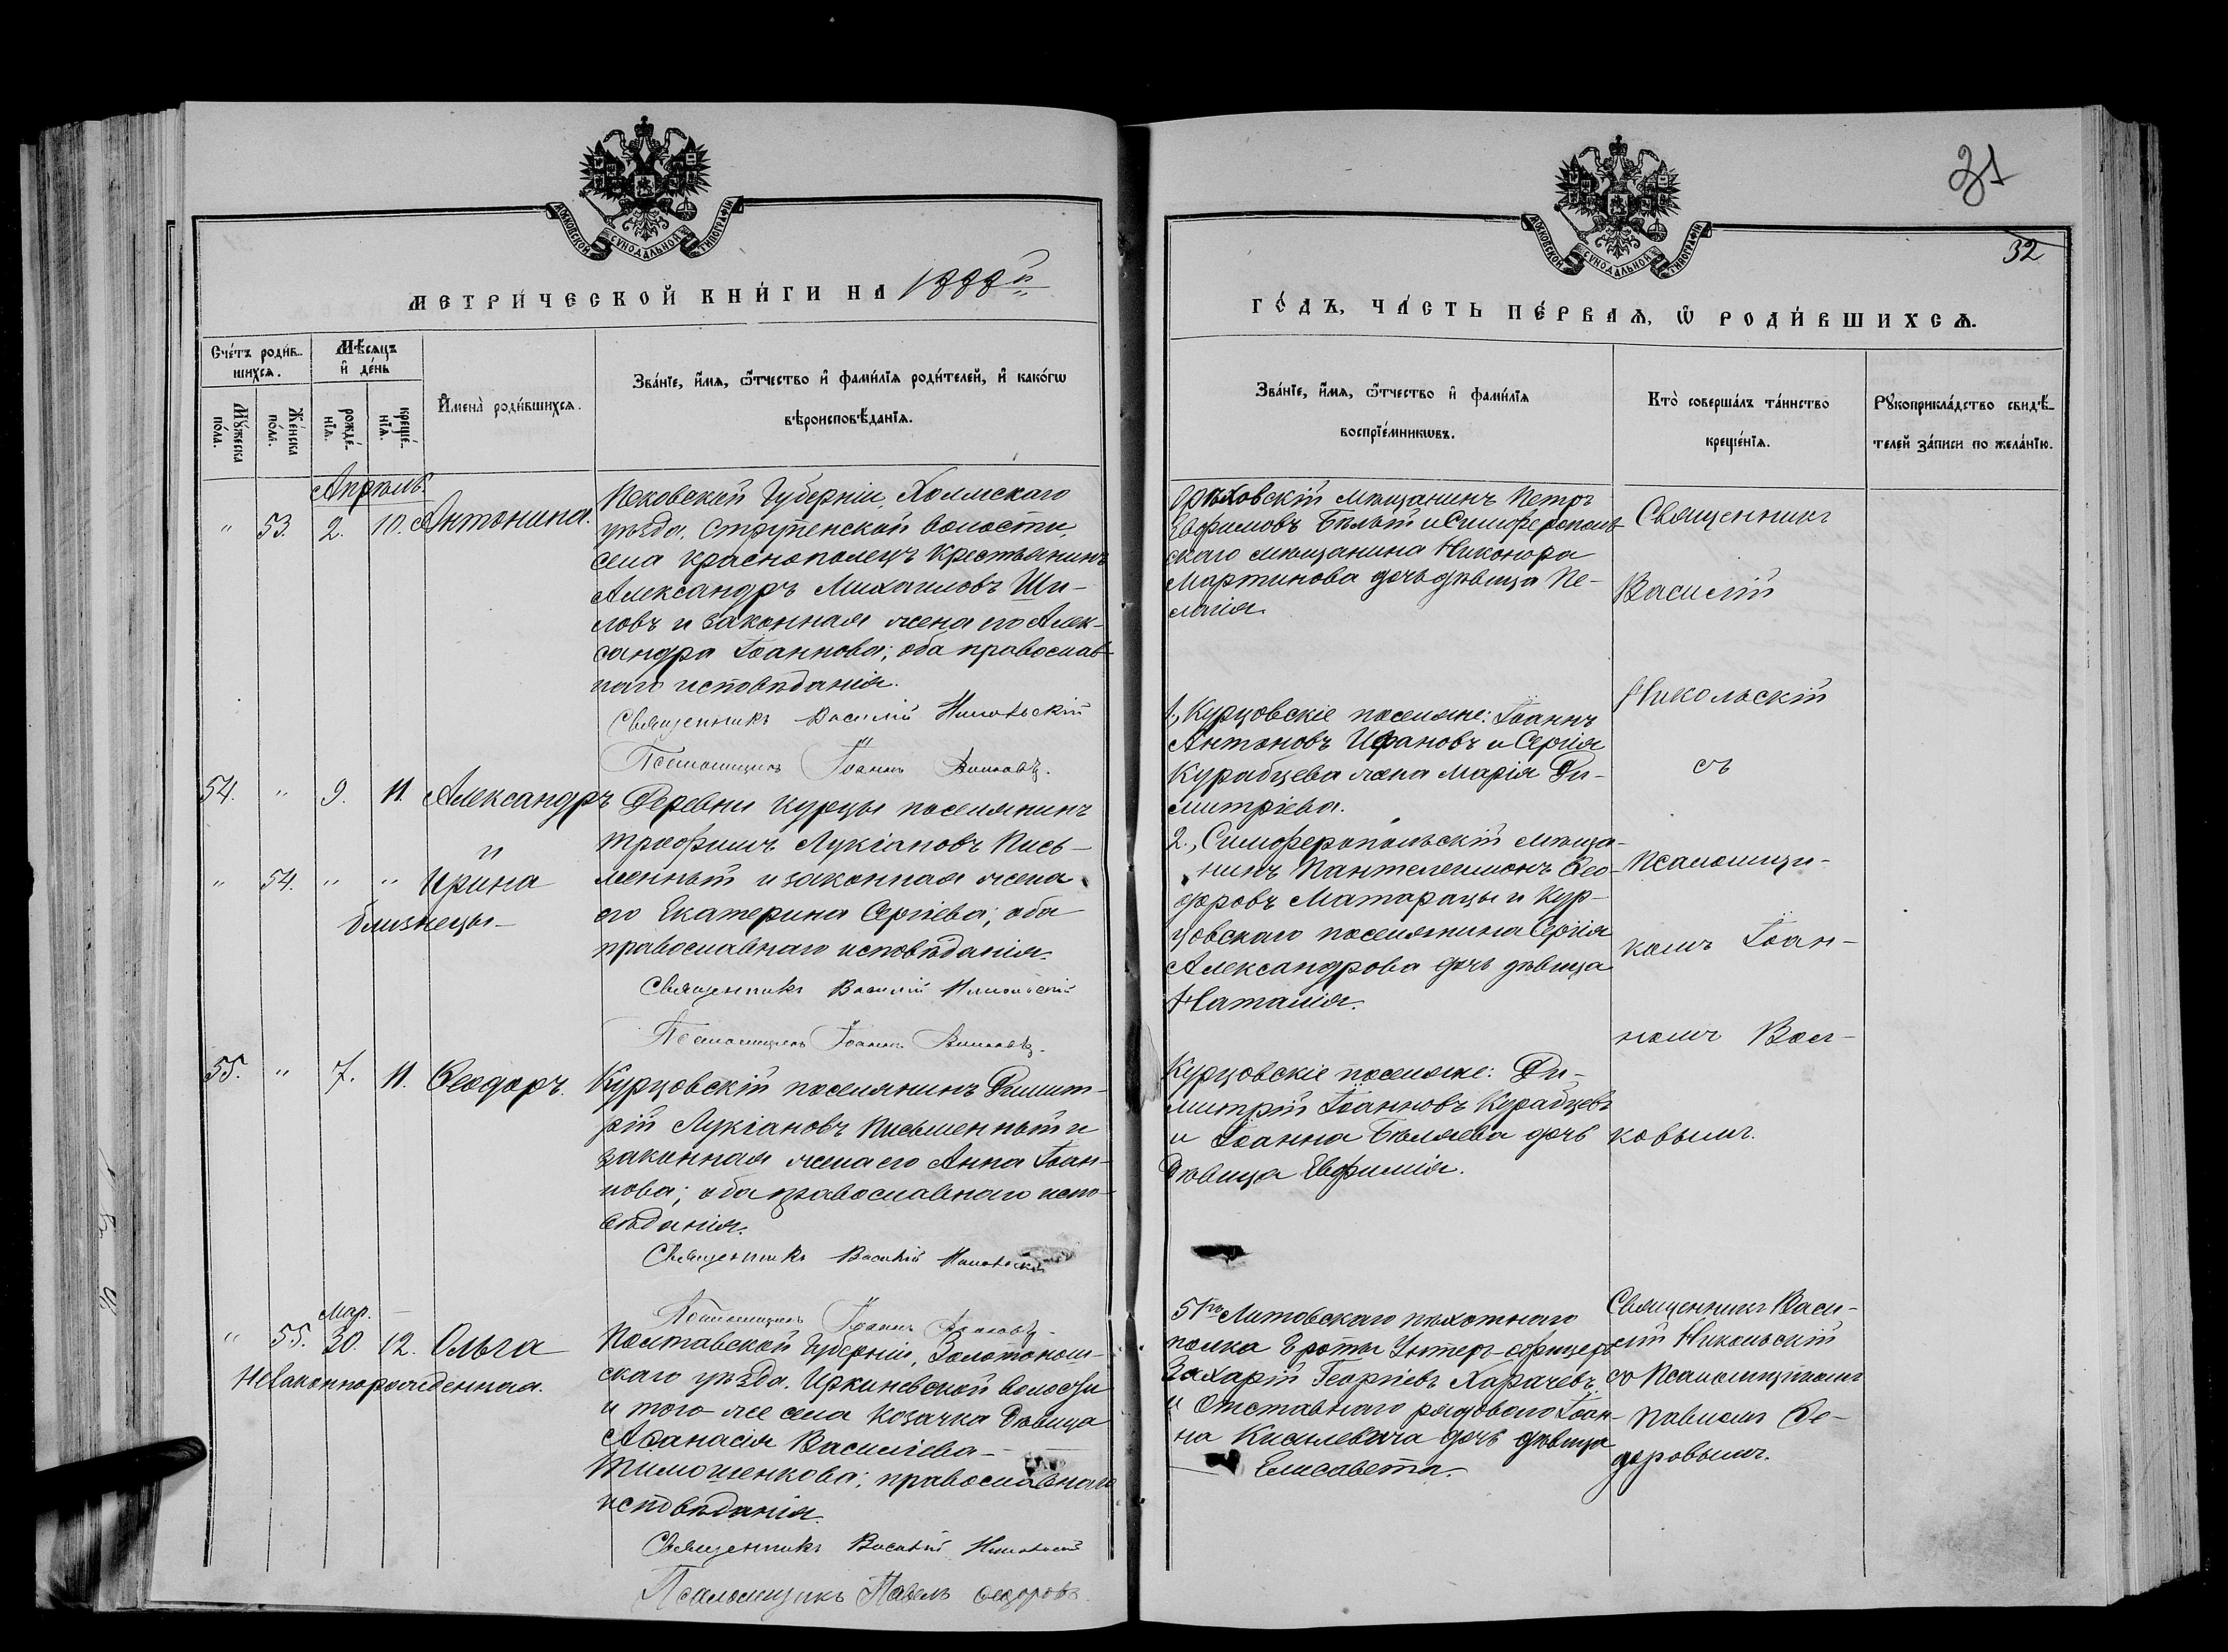 МОСКОВСКОЙ СУНОДАЛЬНОЙ ТИПОГРАФІИ
МЕТРИ́ЧЕСКОЙ КНИ́ГИ НА 1888й
Сче́тъ роди́в-
шихся.
Мѣ́сяцъ
и҆ де́нь
Мꙋ́жеска
по́ла.
Же́нска
по́ла.
рожде́-
нїѧ.
креще́-
нїѧ.
И҆мена̀ роди́вшихсѧ.
Зва́нїе, и҆́мѧ, ѻ҆́тчество и҆ фами́лїѧ роди́телей, и҆ како́гѡ
вѣроисповѣ́данїѧ.
Апрѣль.
" 53. 2. 10. Антонина.
Псковской Губерніи, Холмскаго
уѣзда, Струпенской волости,
села Краснополецъ крестьянинъ
Александръ Михаиловъ Ши-
ловъ и законная жена его Алек-
сандра Іоаннова; оба православ-
наго исповѣданія.
Священникъ Василій Никольскій
Псаломщикъ Іоаннъ Волковъ.
54. " 9. 11. Александръ
и
" 54. " " Ирина
близнецы
Деревни Курцы поселянинъ
Трофимъ Лукіановъ Пись-
менный и законная жена
его Екатерина Сергіева; оба
православнаго исповѣданія.
Священникъ Василій Никольскій
Псаломщикъ Іоаннъ Волковъ.
55. " 7. 11. Ѳеодоръ.
Курцовскій поселянинъ Димит-
рій Лукіановъ Письменный и
законная жена его Анна Іоан-
нова; оба православнаго испо-
вѣданія.
Священникъ Василій Никольскій
Псаломщикъ Іоаннъ Волковъ.
Мар.
" 55. 30. 12. Ольга
Незаконнорожденная.
Полтавской Губерніи, Золотонош-
скаго уѣзда, Иркліевской волости
и того же села козачка дѣвица
Аѳанасія Василіева
Тимошенкова; православнаго
исповѣданія.
Священникъ Василій Никольскій
Псаломщикъ Павелъ Ѳедоровъ.
31
32
МОСКОВСКОЙ СУНОДАЛЬНОЙ ТИПОГРАФІИ
ГО́ДЪ, ЧА́СТЬ ПЕ́РВАѦ, Ѡ҆ РОДИ́ВШИХСѦ.
Зва́нїе, и҆́мѧ, ѻ҆́тчество и҆ фами́лїѧ
воспрїе́мникѡвъ.
Кто̀ соверша́лъ та́инство
креще́нїѧ.
Рꙋкоприкла́дство свидѣ́-
телей за́писи по жела́нїю.
Орѣховскій мѣщанинъ Петръ
Евфимовъ Бѣлый и Симферополь-
скаго мѣщанина Никонора
Мартинова дочь дѣвица Пе-
лагія.
1, Курцовскіе поселяне: Іоаннъ
Антоновъ Ифановъ и Сергія
Курабцева жена Марія Ди-
митріева.
2., Симферопольскій мѣща-
нинъ Пантелеимонъ Ѳео-
доровъ Матарацы и Кур-
цовскаго поселянина Сергія
Александрова дочь дѣвица
Наталія.
Курцовскіе поселяне: Ди-
митрій Іоанновъ Курабцевъ
и Іоанна Бѣляева дочь
дѣвица Евфимія.
51го Литовскаго пѣхотнаго
полка роты Унтеръ-офицеръ
Захарій Георгіевъ Харачевъ
и Отставнаго рядового Іоан-
на Кисилевича дочь дѣвица
Елисавета.
Священникъ
Василій
Никольскій
съ
Псаломщи-
комъ Іоан-
номъ Вол-
ковымъ.
Священникъ Васи-
лій Никольскій
съ Псаломщикомъ
Павломъ Ѳе-
доровымъ.